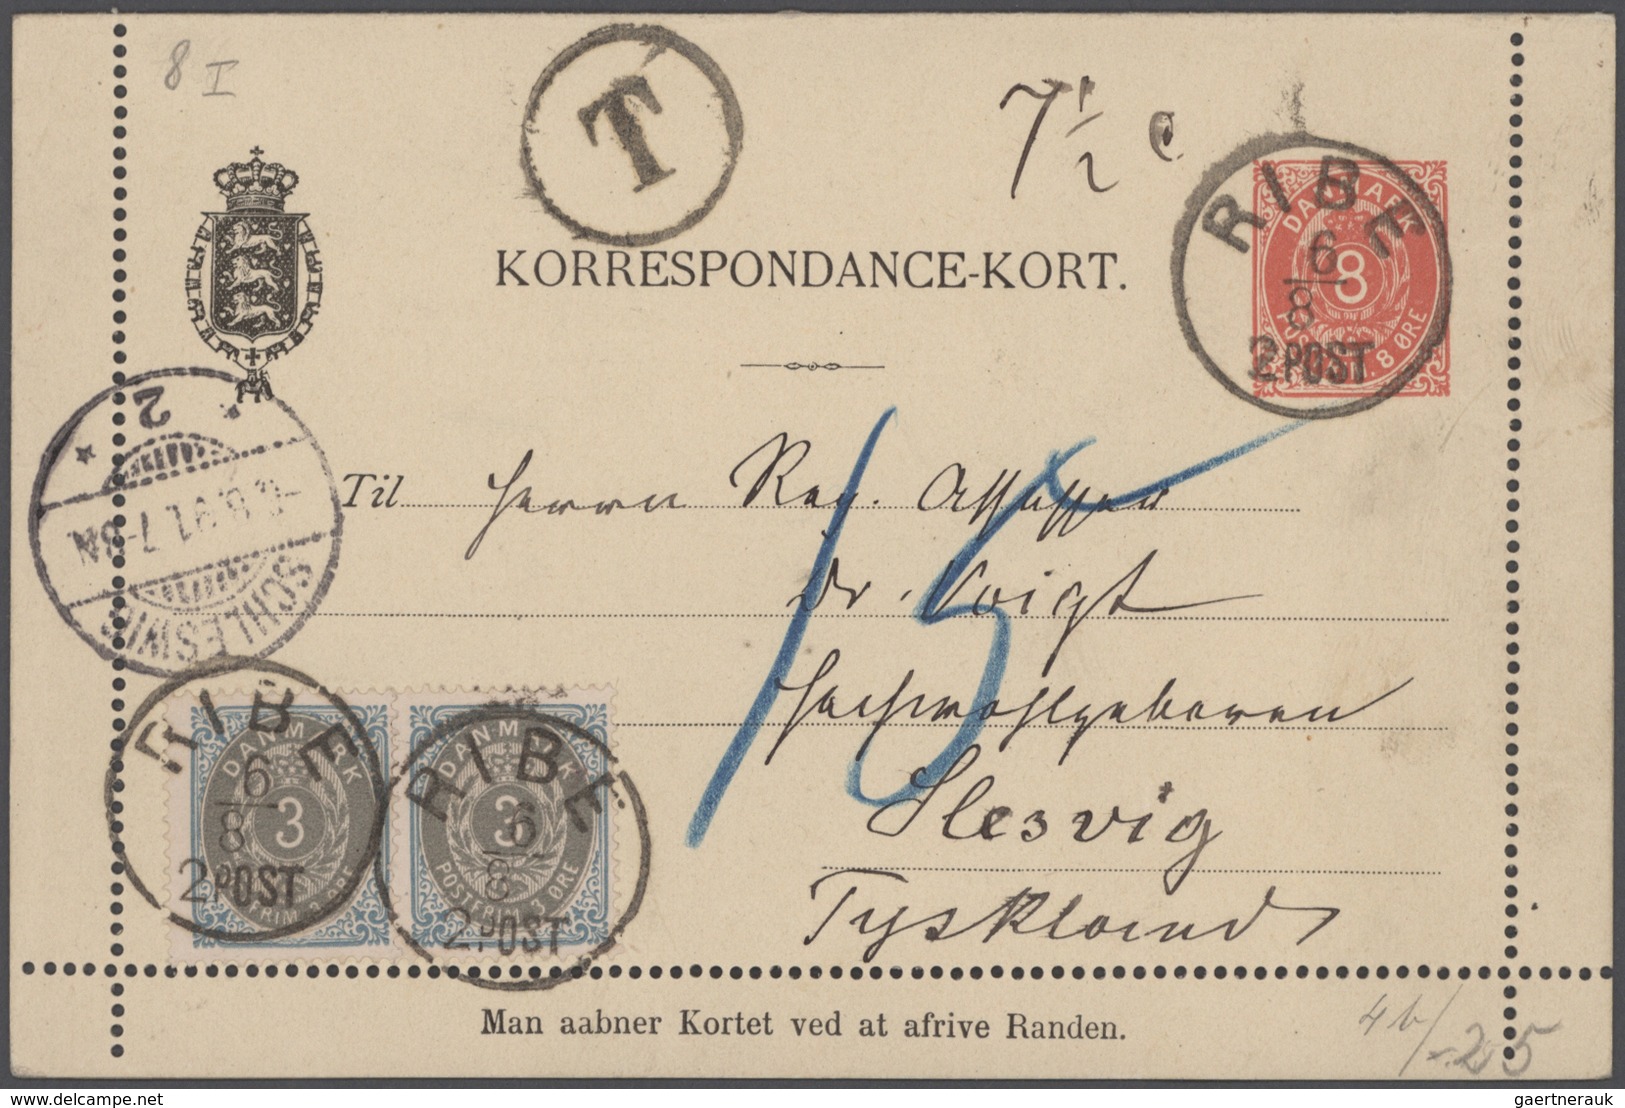 8 I
T
7 1/2 c
RIBE
6/8
2 POST
DANMARK
8
POSTFRIM. 8 ØRE
KORRESPONDANCE-KORT.
2
SCHLESWIG
6.8.91.7-8N.
Til Herrn Reg. Assessor
Dr. Voigt
15
Hochwohlgeboren
Slesvig
Tyskland
RIBE
6/8
2 POST
DANMARK
3
POSTFRIM. 3 ØRE
RIBE
6/8
2 POST
DANMARK
3
POSTFRIM. 3 ØRE
Man aabner Kortet ved at afrive Randen.
25
gaertnerauk @ delcampe.net